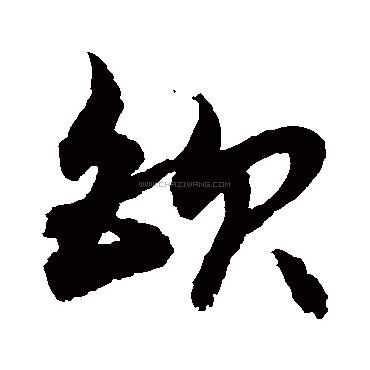 缺
WWW.CHAZIWANG.COM